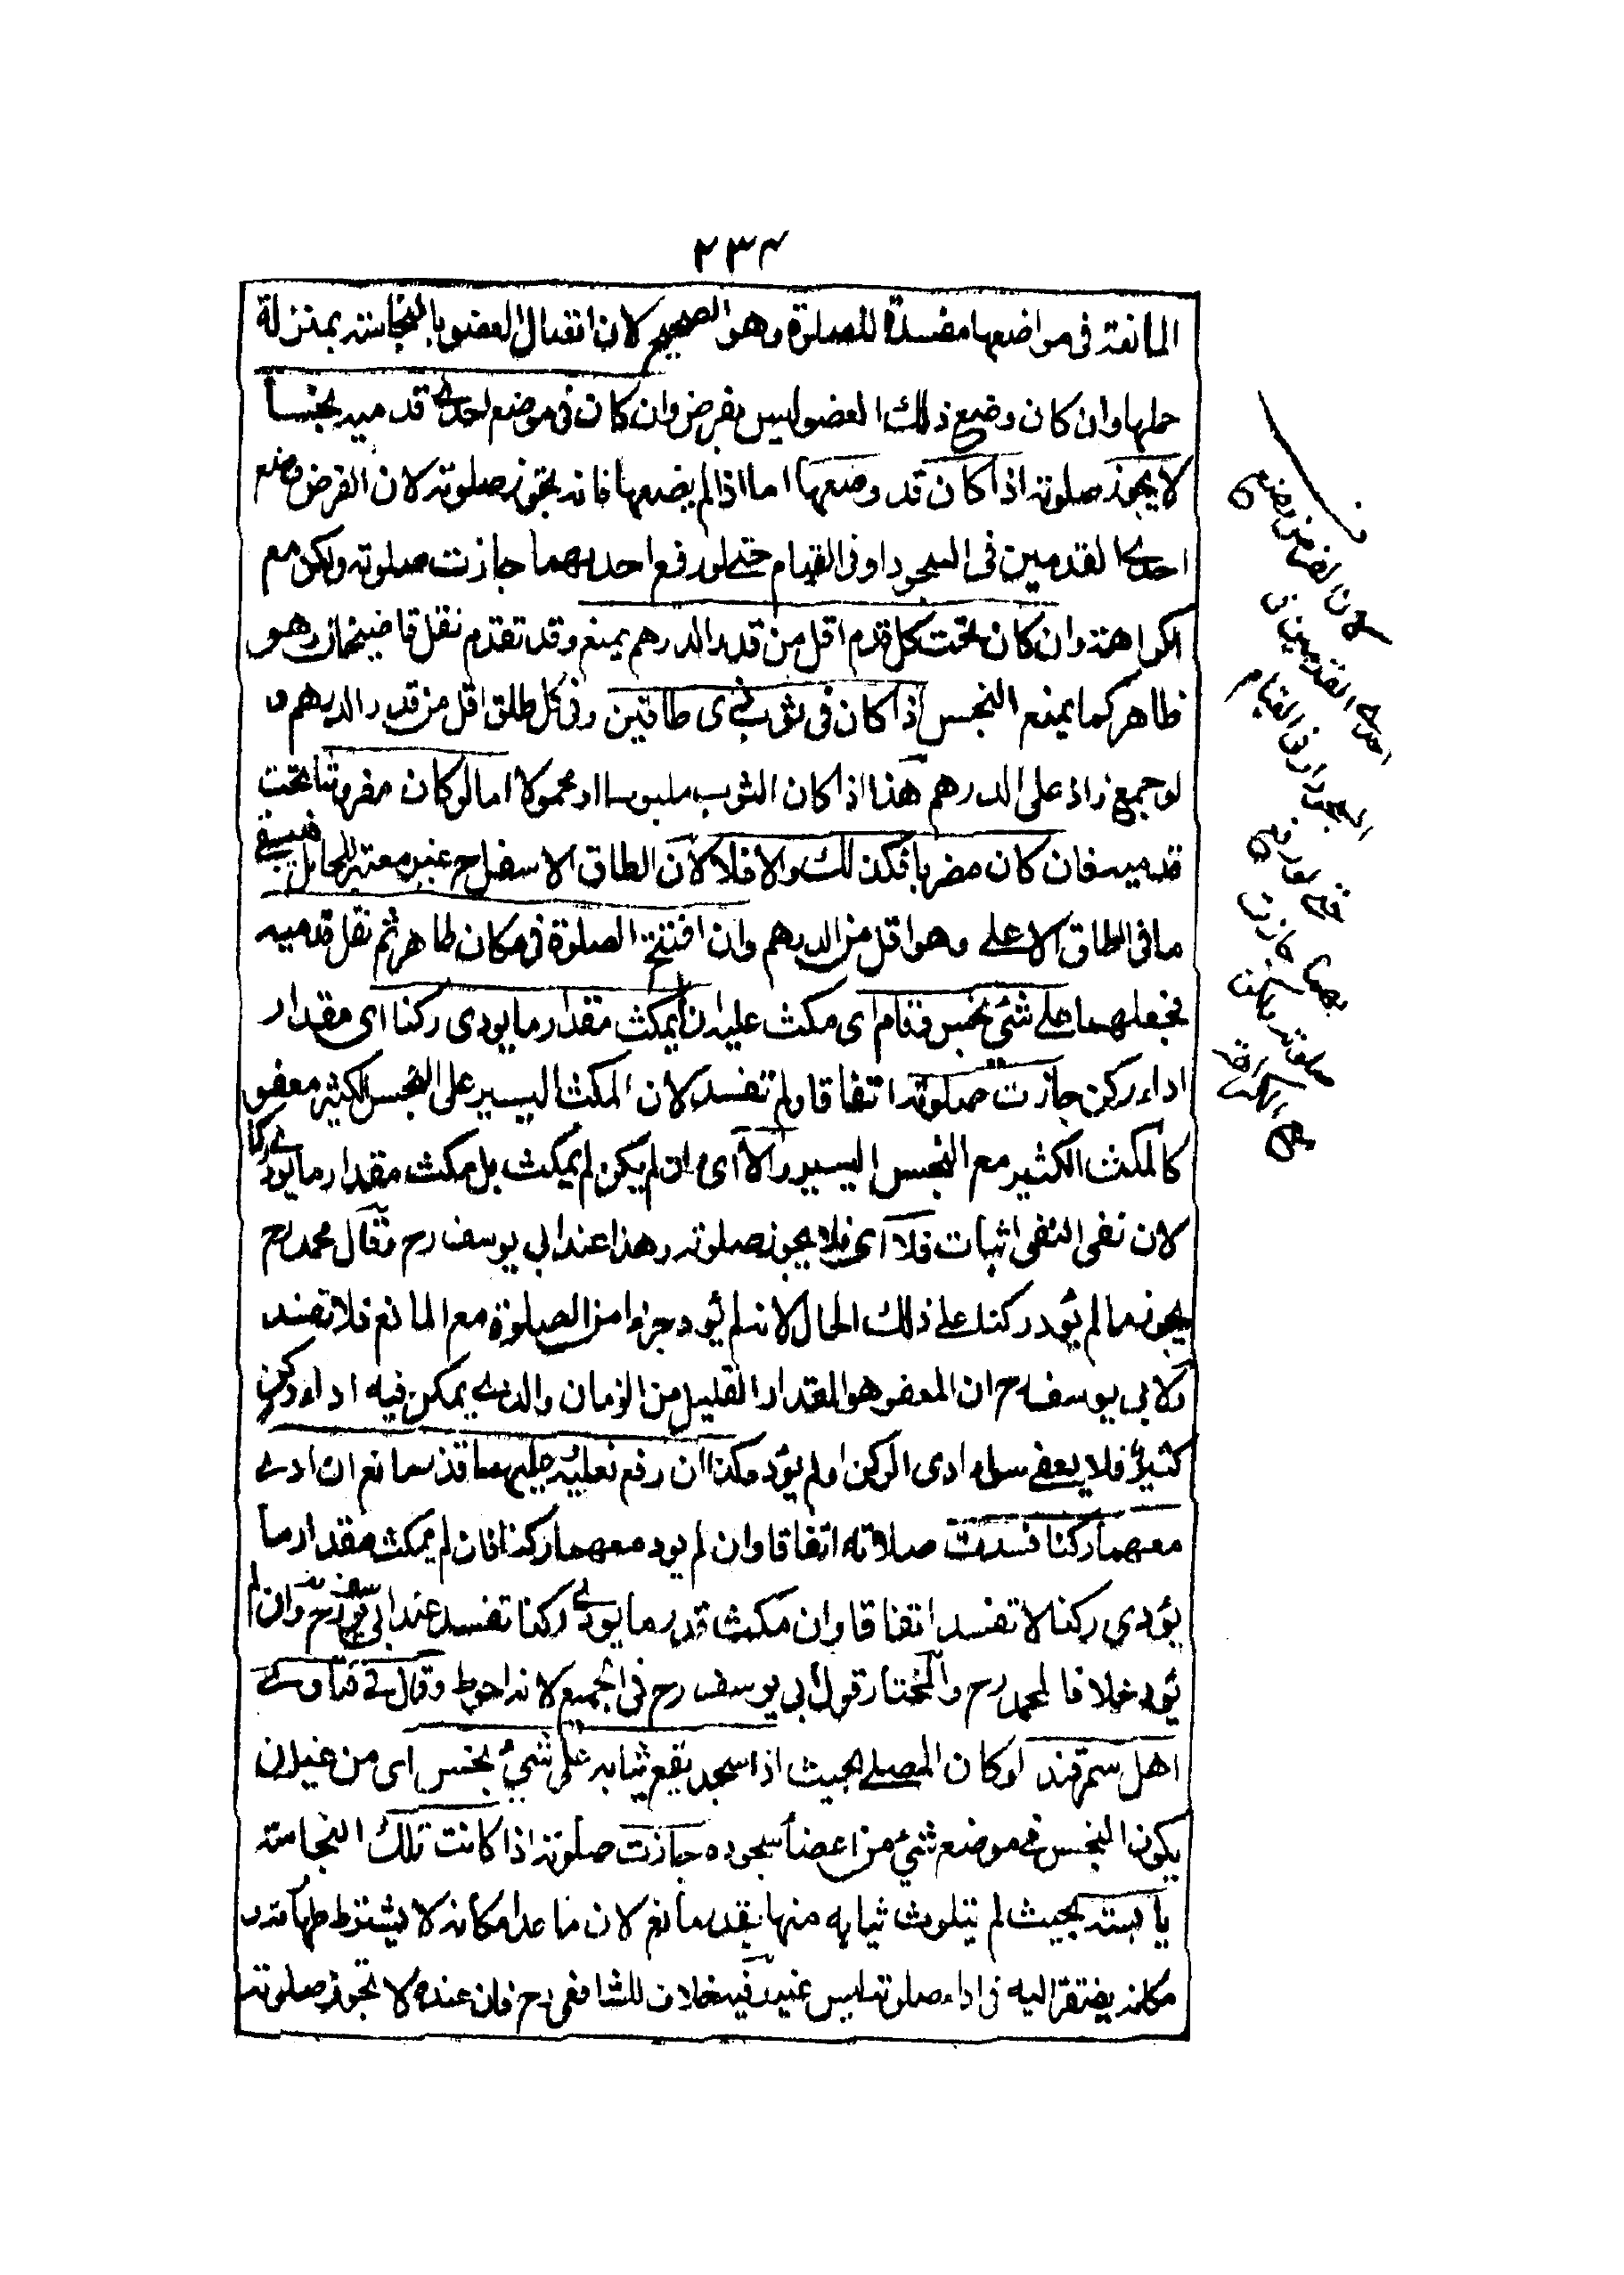 ٢٣٤
المانعة فى مواضعها مفسدة للصلوة وهو الصحيح لان اتصال العضو بالنجاسة بمنزلة
حملها وان كان وضع ذلك العضو ليس بفرض وان كان فى موضع احدى قدميه نجسا
لا يجوز صلوته اذا كان قد وضعها اما اذا لم يضعها فانه تجوز صلوته لان الفرض وضع
احدى القدمين فى السجود او فى القيام حتى لو رفع احديهما جازت صلوته ولكن مع
الكراهة وان كان تحت كل قدم اقل من قدر الدرهم يمنع وقد تقدم نقل قاضيخان وهو
ظاهر كما يمنع النجس اذا كان فى ثوب ذى طاقين وفى كل طاق اقل من قدر الدرهم و
لو جمع زاد على الدرهم هذا اذا كان الثوب ملبوسا او محمولا اما لو كان مفروشا تحت
قدميه فان كان مضربا فكذلك والا فلا لان الطاق الاسفل ح غير معتبر للحائل فبقى
ما فى الطاق الاعلى وهو اقل من الدرهم وان افتتح الصلوة فى مكان طاهر ثم نقل قدميه
فجعلهما على شئ نجس فقام اى مكث عليه ان لم يمكث مقدار ما يودى ركنا اى مقدار
اداء ركن جازت صلوته اتفاقا ولم تفسد لان المكث اليسير على النجس الكثير معفو
كالمكث الكثير مع النجس اليسير والا اى وان لم يكن لم يمكث بل مكث مقدار ما يودى ركنا
لان نفى النفى اثبات فلا اى فلا يجوز صلوته وهذا عند ابى يوسف رح وقال محمد رح
يجوز ما لم يؤد ركنا على ذلك الحال لانه لم يؤد جزءا من الصلوة مع المانع فلا تفسد
ولابى يوسف رح ان المعفو هو المقدار القليل من الزمان والذى يمكن فيه اداء ركن
كثير فلا يعفى سواء ادى الركن او لم يؤد وكذا ان رفع نعليه عليهما قذر مانع ان ادى
معهما ركنا فسدت صلاته اتفاقا وان لم يود معهما ركنا فان لم يمكث مقدار ما
يؤدى ركنا لا تفسد اتفاقا وان مكث قدر ما يودى ركنا تفسد عند ابى يوسف رح وان لم
يؤد خلافا لمحمد رح والمختار قول ابى يوسف رح فى الجميع لانه احوط وقال فى فتاوى
اهل سمرقند لو كان المصلى بحيث اذا سجد يقع ثيابه على شئ نجس اى من غير ان
يكون النجس فى موضع شئ من اعضاء سجوده جازت صلوته اذا كانت تلك النجاسة
يابسة بحيث لم يتلوث ثيابه منها بقدر مانع لان ما عدا مكانه لا يشترط طهارته و
مكانه يفتقر اليه فى اداء صلوته ليس غير وفيه خلاف للشافعى رح فان عنده لا تجوز صلوته
احدى القدمين فى
السجود او فى القيام
حتى لو رفع
جازت
صلوته ولكن
مع الكراهة